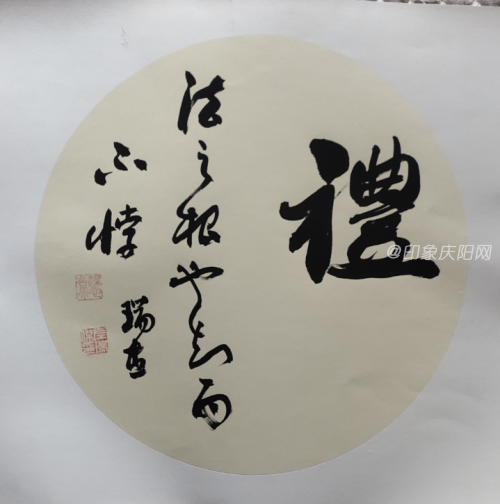 禮
法之根也知而
不悖
瑞
@印象庆阳网